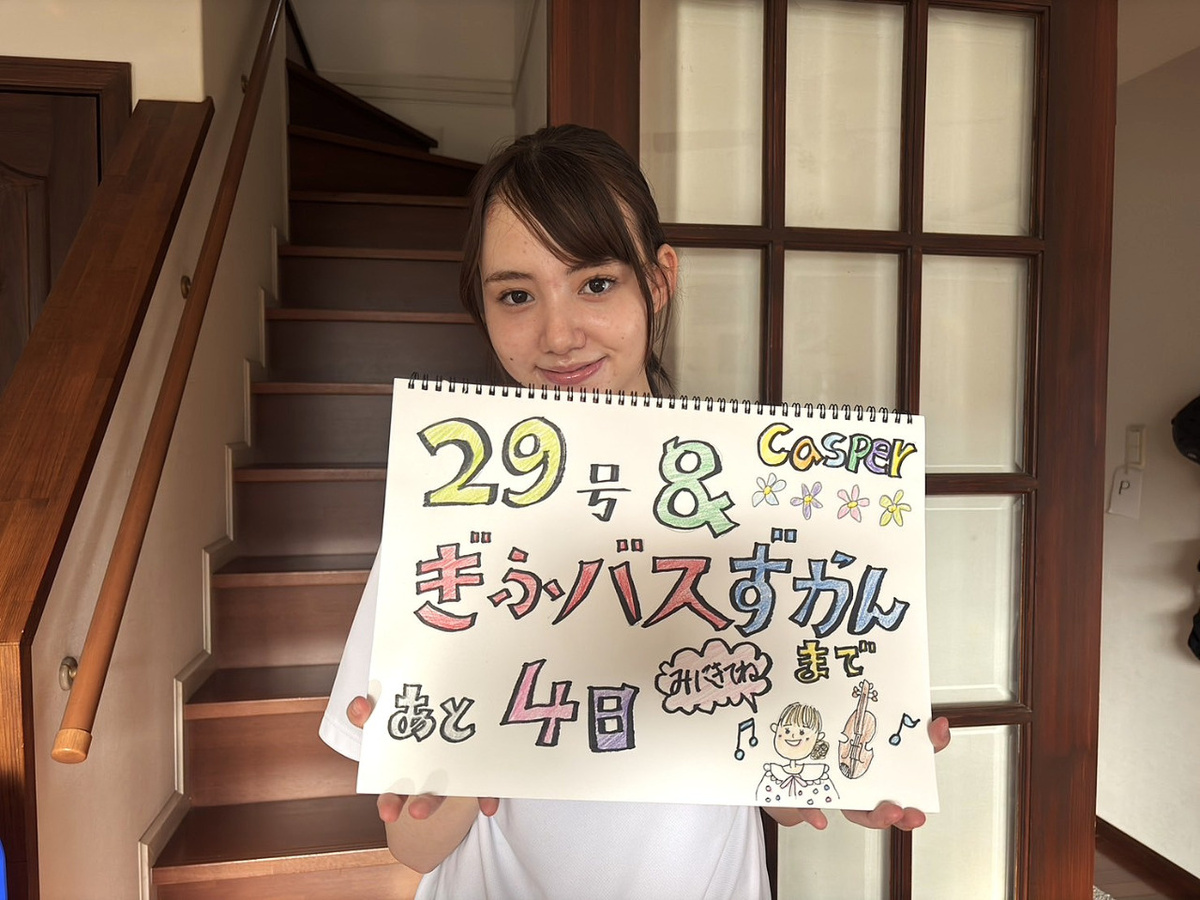 29号 & casper
ぎふバスずかん
まで
みにきてね
あと 4日
P